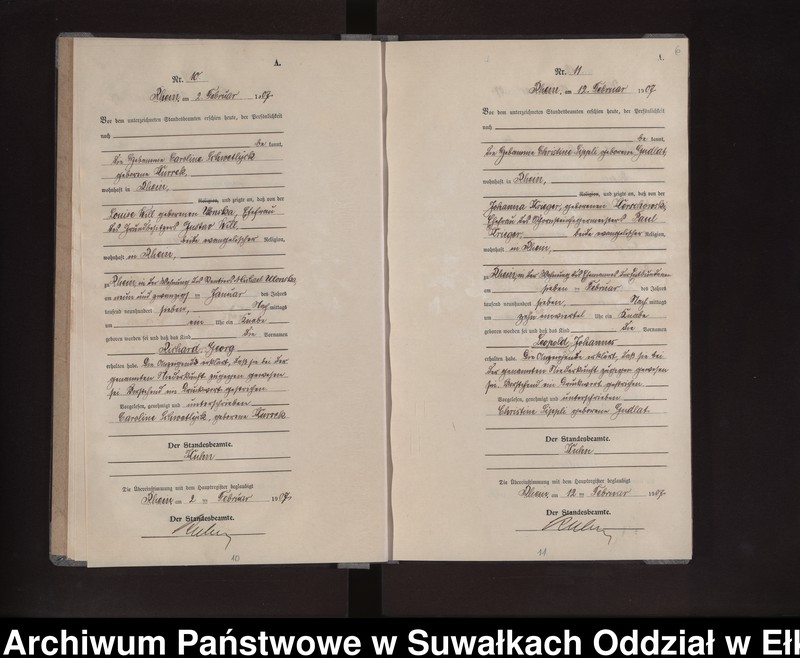 A.
Nr. 10
Rhein, am 2 Februar 1907.
Vor dem unterzeichneten Standesbeamten erschien heute, der Persönlichkeit
nach
be kannt,
die Hebamme Caroline
geborene Kurrek,
wohnhaft in Rhein,
Religion, und zeigte an, daß von der
Louise Will geborenen Ehefrau
des Gustav Will,
beide evangelischer Religion,
wohnhaft in Rhein,
zu Rhein, in der Wohnung des Rentiers Michael
am neun und zwanzigsten Januar des Jahres
tausend neunhundert sieben, Nach mittags
um ein Uhr ein Knabe
geboren worden sei und daß das Kind die Vornamen
Richard Georg
erhalten habe. Die Anzeigende erklärt, daß sie bei der
genannten Niederkunft zugegen gewesen
sei. Vorstehend ein Druckwort gestrichen
Vorgelesen, genehmigt und unterschrieben
Caroline geborene Kurrek
Der Standesbeamte.
Kuhn
Die Übereinstimmung mit dem Hauptregister beglaubigt
Rhein, am 2 ten Februar 1907.
Der Standesbeamte.
Kuhn
10
A.
6
Nr. 11
Rhein, am 12. Februar 1907.
Vor dem unterzeichneten Standesbeamten erschien heute, der Persönlichkeit
nach
be kannt,
die Hebamme Christine geborene Gudlat,
wohnhaft in Rhein,
Religion, und zeigte an, daß von der
Johanna Krieger, geborenen
Ehefrau des Schornsteinfegermeisters Paul
Krieger beide evangelischer Religion,
wohnhaft in Rhein,
zu Rhein, in der Wohnung des Ehemannes
am sieben ten Februar des Jahres
tausend neunhundert sieben, Nach mittags
um zehn einviertel Uhr ein Knabe
geboren worden sei und daß das Kind die Vornamen
Leopold Johannes
erhalten habe. Die Anzeigende erklärt, daß sie bei
der genannten Niederkunft zugegen gewesen
sei. Vorstehend ein Druckwort gestrichen
Vorgelesen, genehmigt und unterschrieben
Christine geborene Gudlat.
Der Standesbeamte.
Kuhn
Die Übereinstimmung mit dem Hauptregister beglaubigt
Rhein, am 12 ten Februar 1907.
Der Standesbeamte.
Kuhn
11
Archiwum Państwowe w Suwałkach Oddział w Ełk